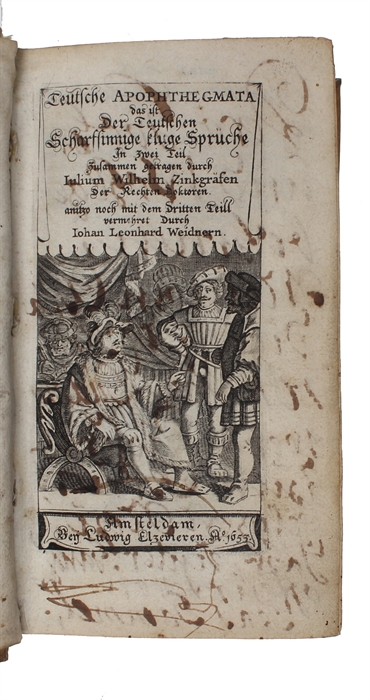 Teutsche APOPHTHEGMATA
das ist
Der Teutschen
Scharfsinnige kluge Sprüche
In zwei Teil
zusammen getragen durch
Iulium Wilhelm Zinkgräfen
Der Rechten Doktoren.
anitzo noch mit dem Dritten Teill
vermehret Durch
Iohan Leonhard Weidnern.
Amsteldam,
Bey Ludwig Elzevieren. Aº 1653.